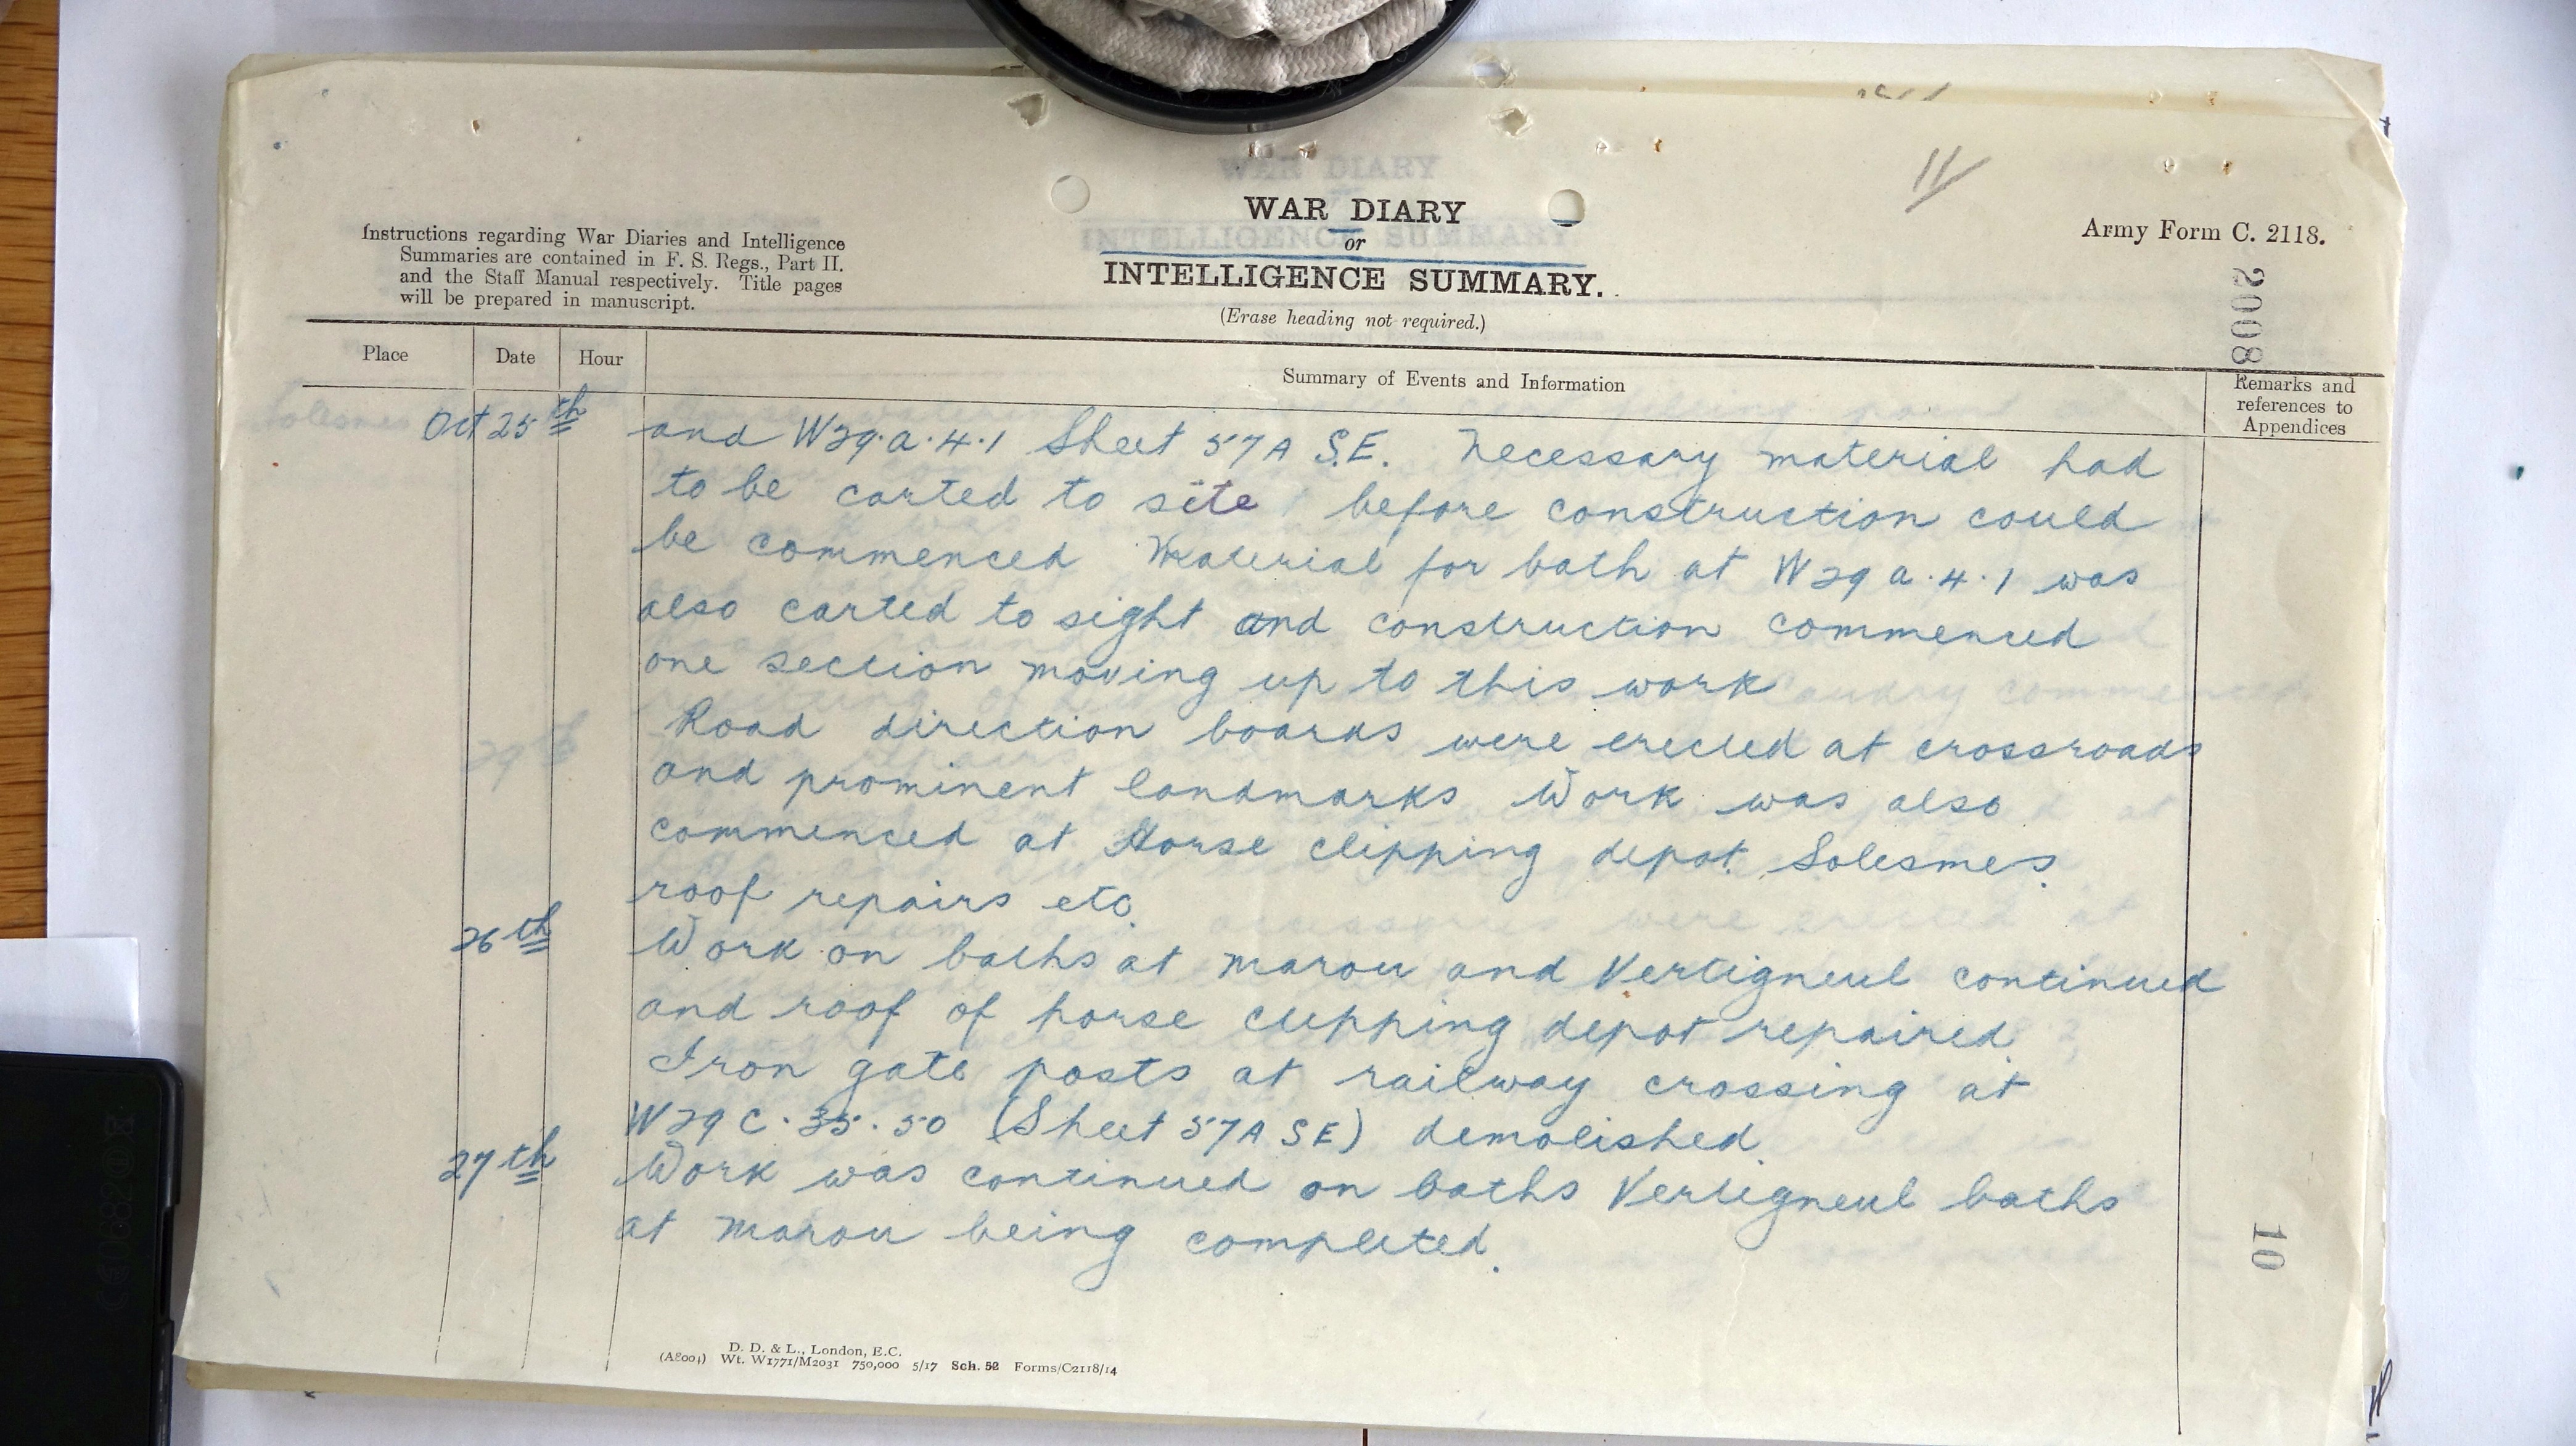 11
WAR DIARY
or
INTELLIGENCE SUMMARY.
(Erase heading not required.)
Army Form C. 2118.
Instructions regarding War Diaries and Intelligence
Summaries are contained in F. S. Regs., Part II.
and the Staff Manual respectively. Title pages
will be prepared in manuscript.
2008
Place Date Hour Summary of Events and Information Remarks and
references to
Appendices
Oct 25th and W29.a.4.1 Sheet 57A S.E. Necessary material had
to be carted to site before construction could
be commenced Material for bath at W29 a.4.1 was
also carted to sight and construction commenced
one section moving up to this work
Road direction boards were erected at crossroads
and prominent landmarks Work was also
commenced at Horse clipping depot. Solesmes.
roof repairs etc.
26th Work on baths at Marou and Vertigneul continued
and roof of horse clipping depot repaired.
Iron gate posts at railway crossing at
W29 C.35.50 (Sheet 57A SE) demolished.
27th Work was continued on baths Vertigneul baths
at Marou being completed.
10
D. D. & L., London, E.C.
(A8004) Wt. W1771/M2031 750,000 5/17 Sch. 52 Forms/C2118/14